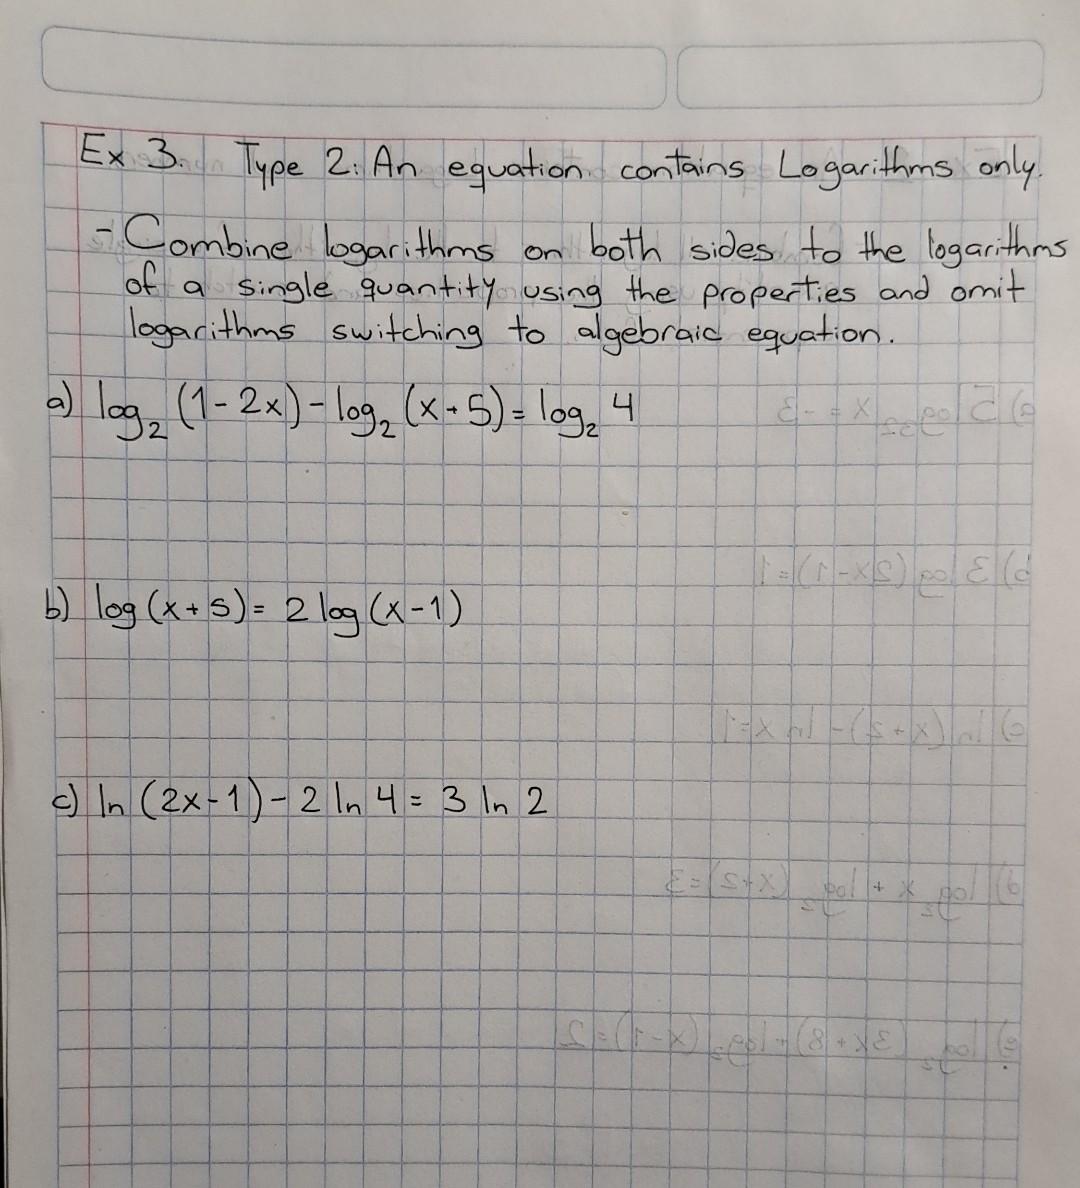 Ex 3. Type 2: An equation contains Logarithms only.
- Combine logarithms on both sides to the logarithms
of a single quantity using the properties and omit
logarithms switching to algebraic equation.
a) log₂ (1-2x)-log₂ (x+5)=log₂ 4
b) log(x+5)= 2 log(x-1)
c) ln (2x-1)-2 ln 4= 3 ln 2